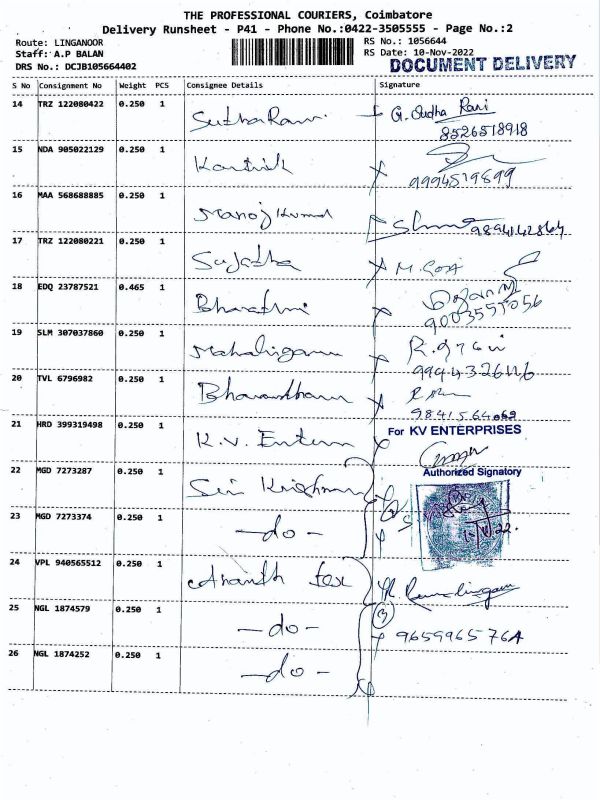 THE PROFESSIONAL COURIERS, Coimbatore
Delivery Runsheet - P41 - Phone No.:0422-3505555 - Page No.:2
Route: LINGANOOR RS No.: 1056644
Staff: A.P BALAN RS Date: 10-Nov-2022
DRS No.: DCJB105664402 DOCUMENT DELIVERY
S No Consignment No Weight PCS Consignee Details Signature
14 TRZ 122080422 0.250 1 Sudha Rani G. Sudha Rani
8526518918
15 NDA 905022129 0.250 1 Karthik
9994519899
16 MAA 568688885 0.250 1 Manoj Kumar
9894142864
17 TRZ 122080221 0.250 1 Sujatha
18 EDQ 23787521 0.465 1 Bharathi
9003555056
19 SLM 307037860 0.250 1
20 TVL 6796982 0.250 1
21 HRD 399319498 0.250 1 K.V. For KV ENTERPRISES
Authorized Signatory
22 MGD 7273287 0.250 1 Sri Krishna
23 MGD 7273374 0.250 1 -do-
24 VPL 940565512 0.250 1 Ananth Tex
25 NGL 1874579 0.250 1 -do-
26 NGL 1874252 0.250 1 -do-